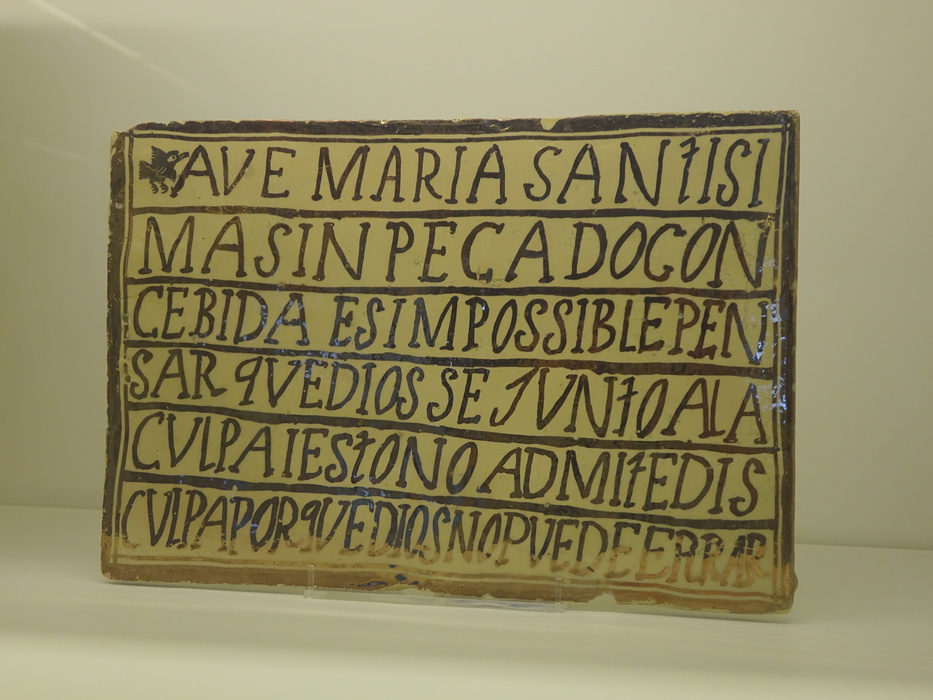 AVE MARIA SANTISI
MASIN PECADOCON
CEBIDA ESIMPOSSIBLEPEN
SAR qVEDIOS SE JVNTO ALA
CVLPAIESTONO ADMITEDIS
CVLPAPORqVEDIOSNOPVEDEERRAR